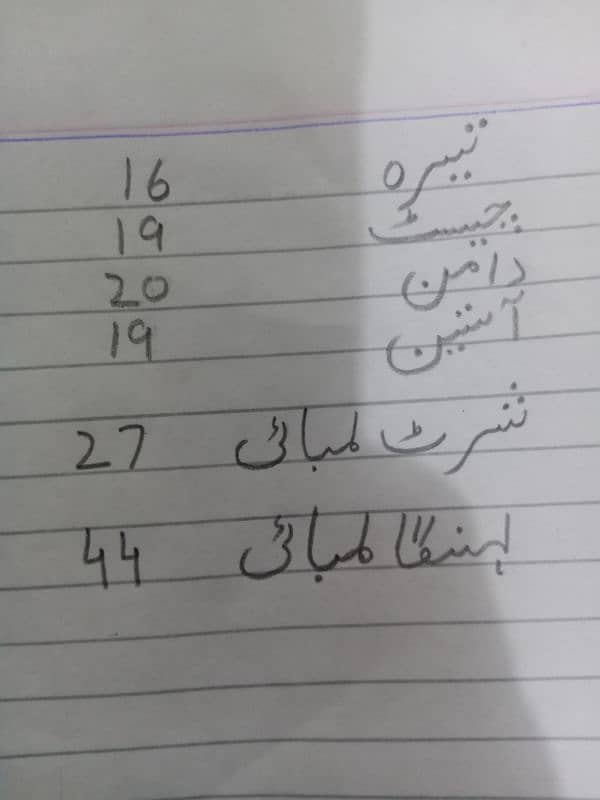 تیرہ 16
چیسٹ 19
دامن 20
آستین 19
شرٹ لمبائی 27
لہنگا لمبائی 44